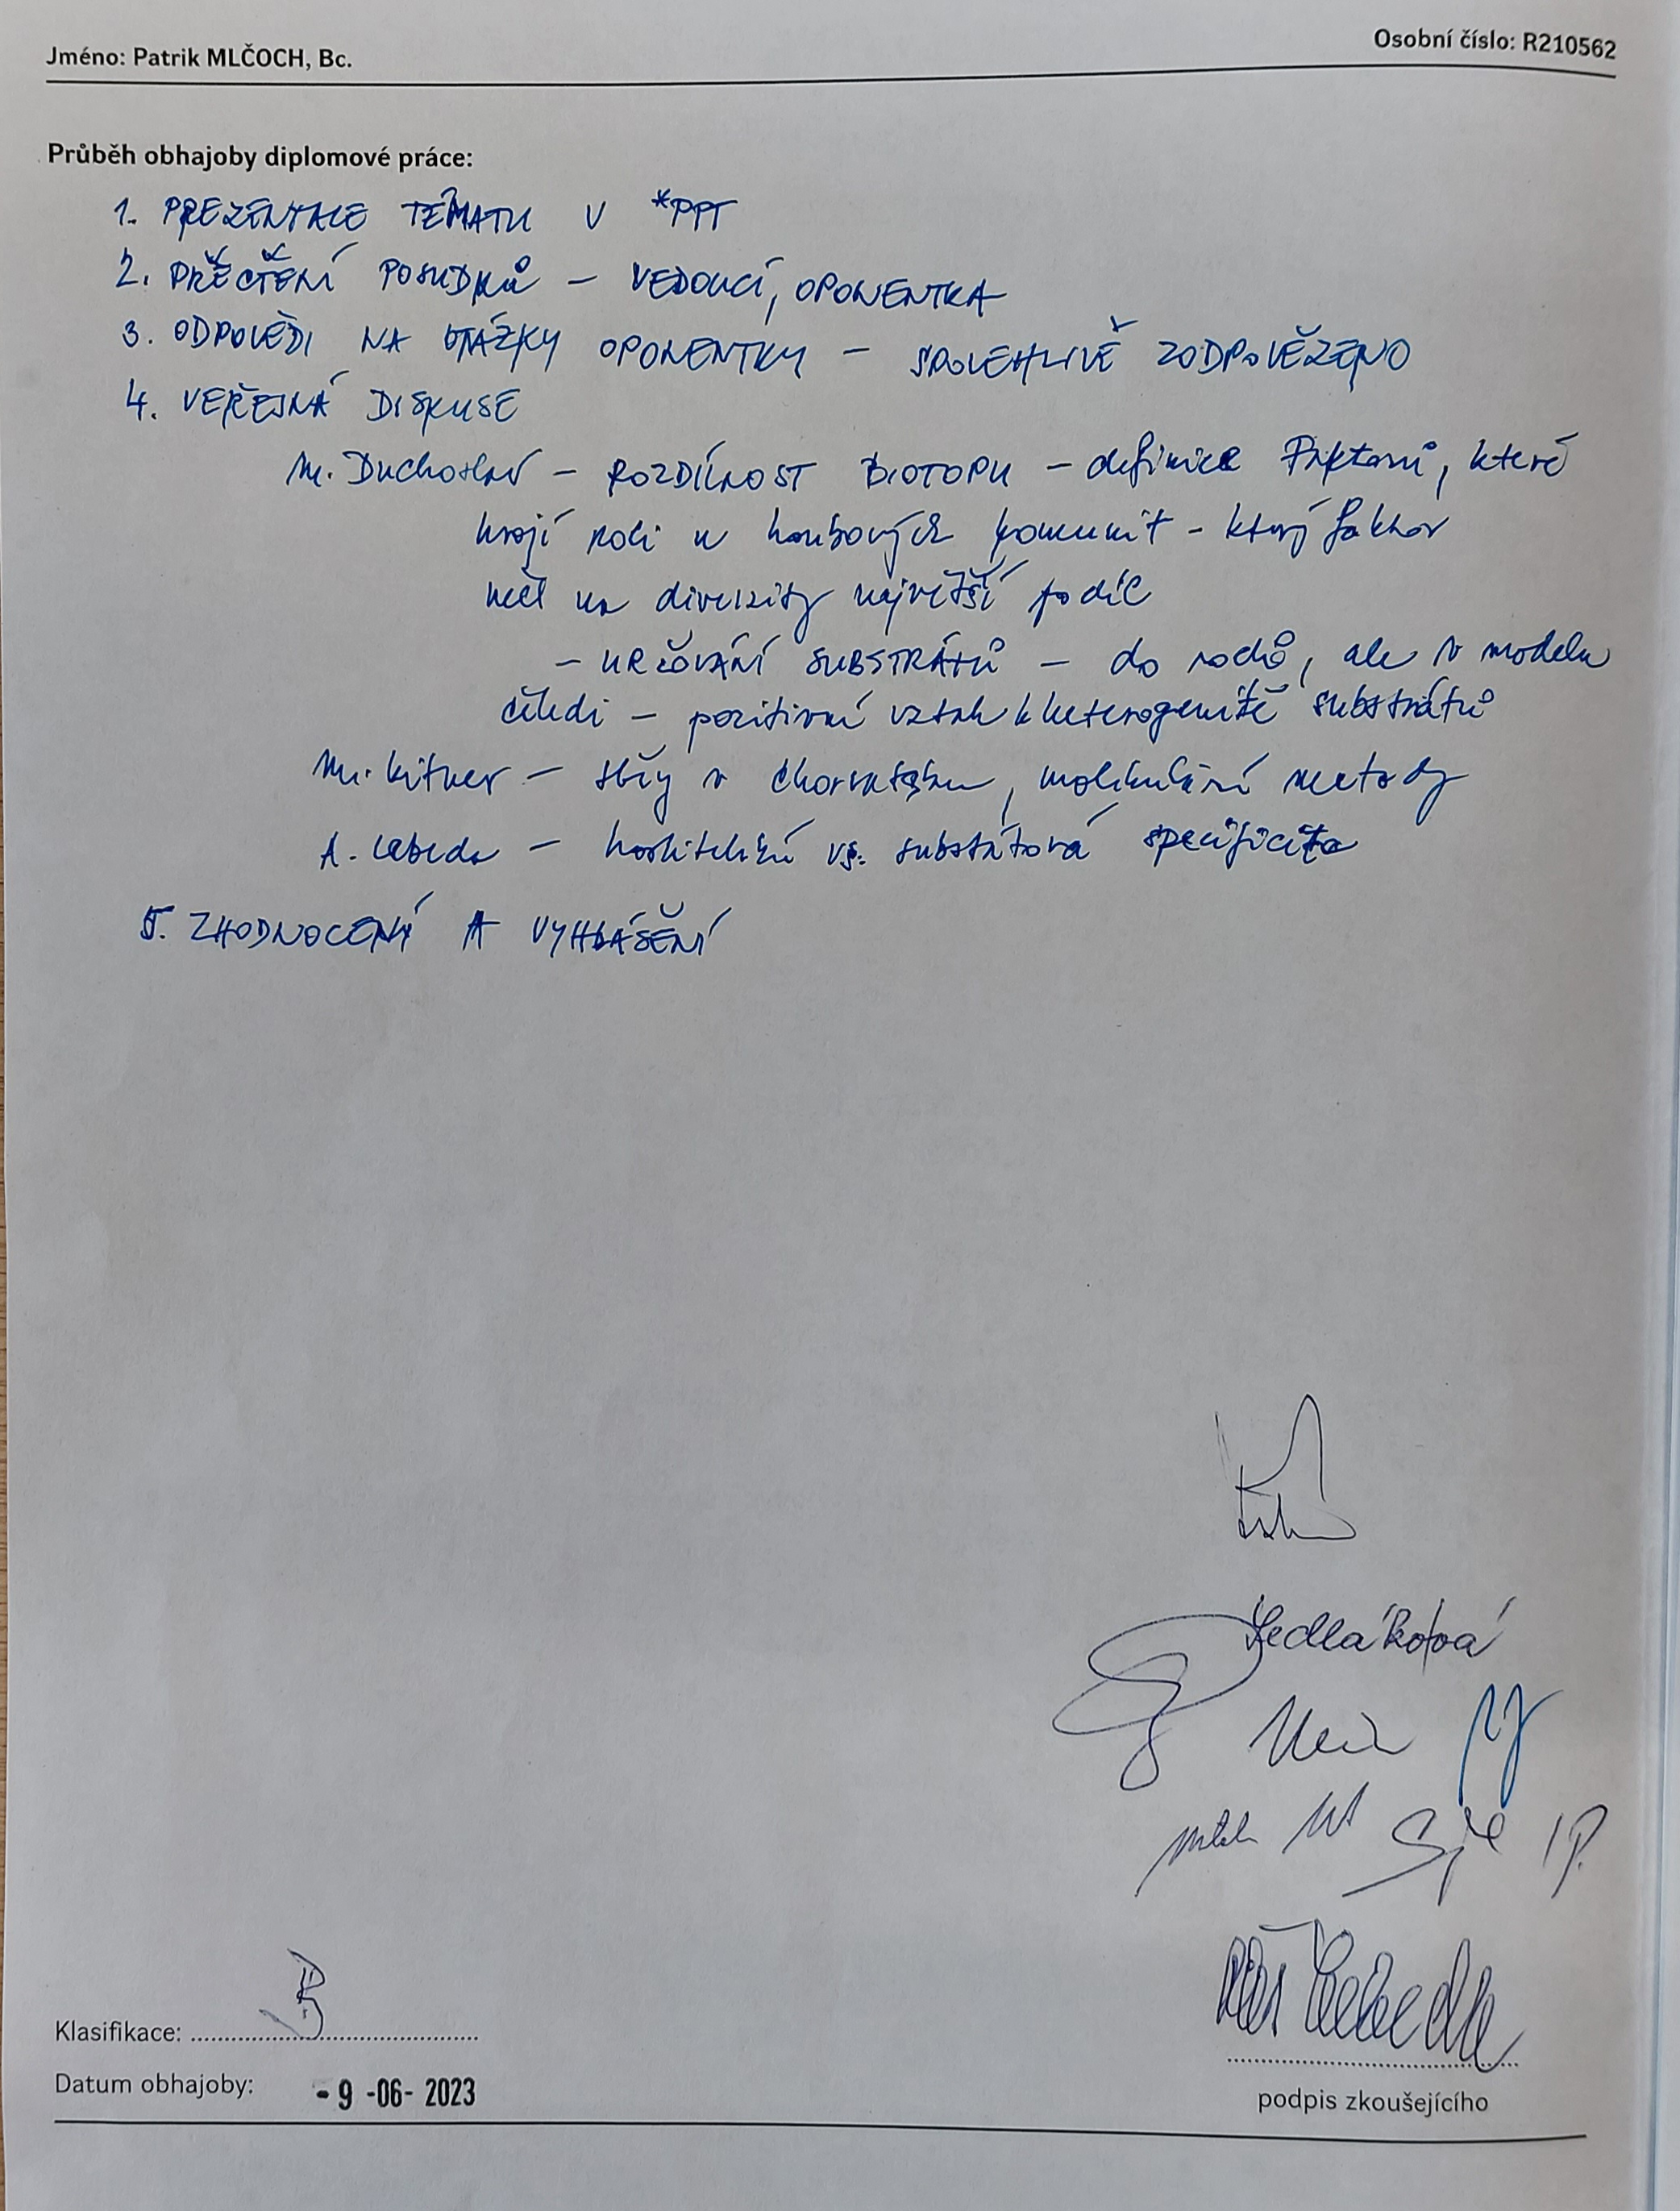 Jméno: Patrik MLČOCH, Bc.
Osobní číslo: R210562
Průběh obhajoby diplomové práce:
1. PREZENTACE TÉMATU V *PPT
2. PŘEČTENÍ POSUDKŮ – VEDOUCÍ, OPONENTKA
3. ODPOVĚDI NA OTÁZKY OPONENTKY – SPOLEHLIVĚ ZODPOVĚZENO
4. VEŘEJNÁ DISKUSE
M. Duchoslav – ROZDÍLNOST BIOTOPU – definice Faktorů, které
hrají roli u houbových komunit – který faktor
měl na diverzity největší podíl
– URČOVÁNÍ SUBSTRÁTŮ – do rodů, ale v modelu
čeledi – pozitivní vztah k heterogenitě substrátů
M. Kitner – sběry v Chorvatsku, molekulární metody
A. Lebeda – hostitelská vs. substrátová specificita
5. ZHODNOCENÍ A VYHLÁŠENÍ
Sedlářová
Klasifikace: B
Lebeda
Datum obhajoby: - 9 -06- 2023
podpis zkoušejícího